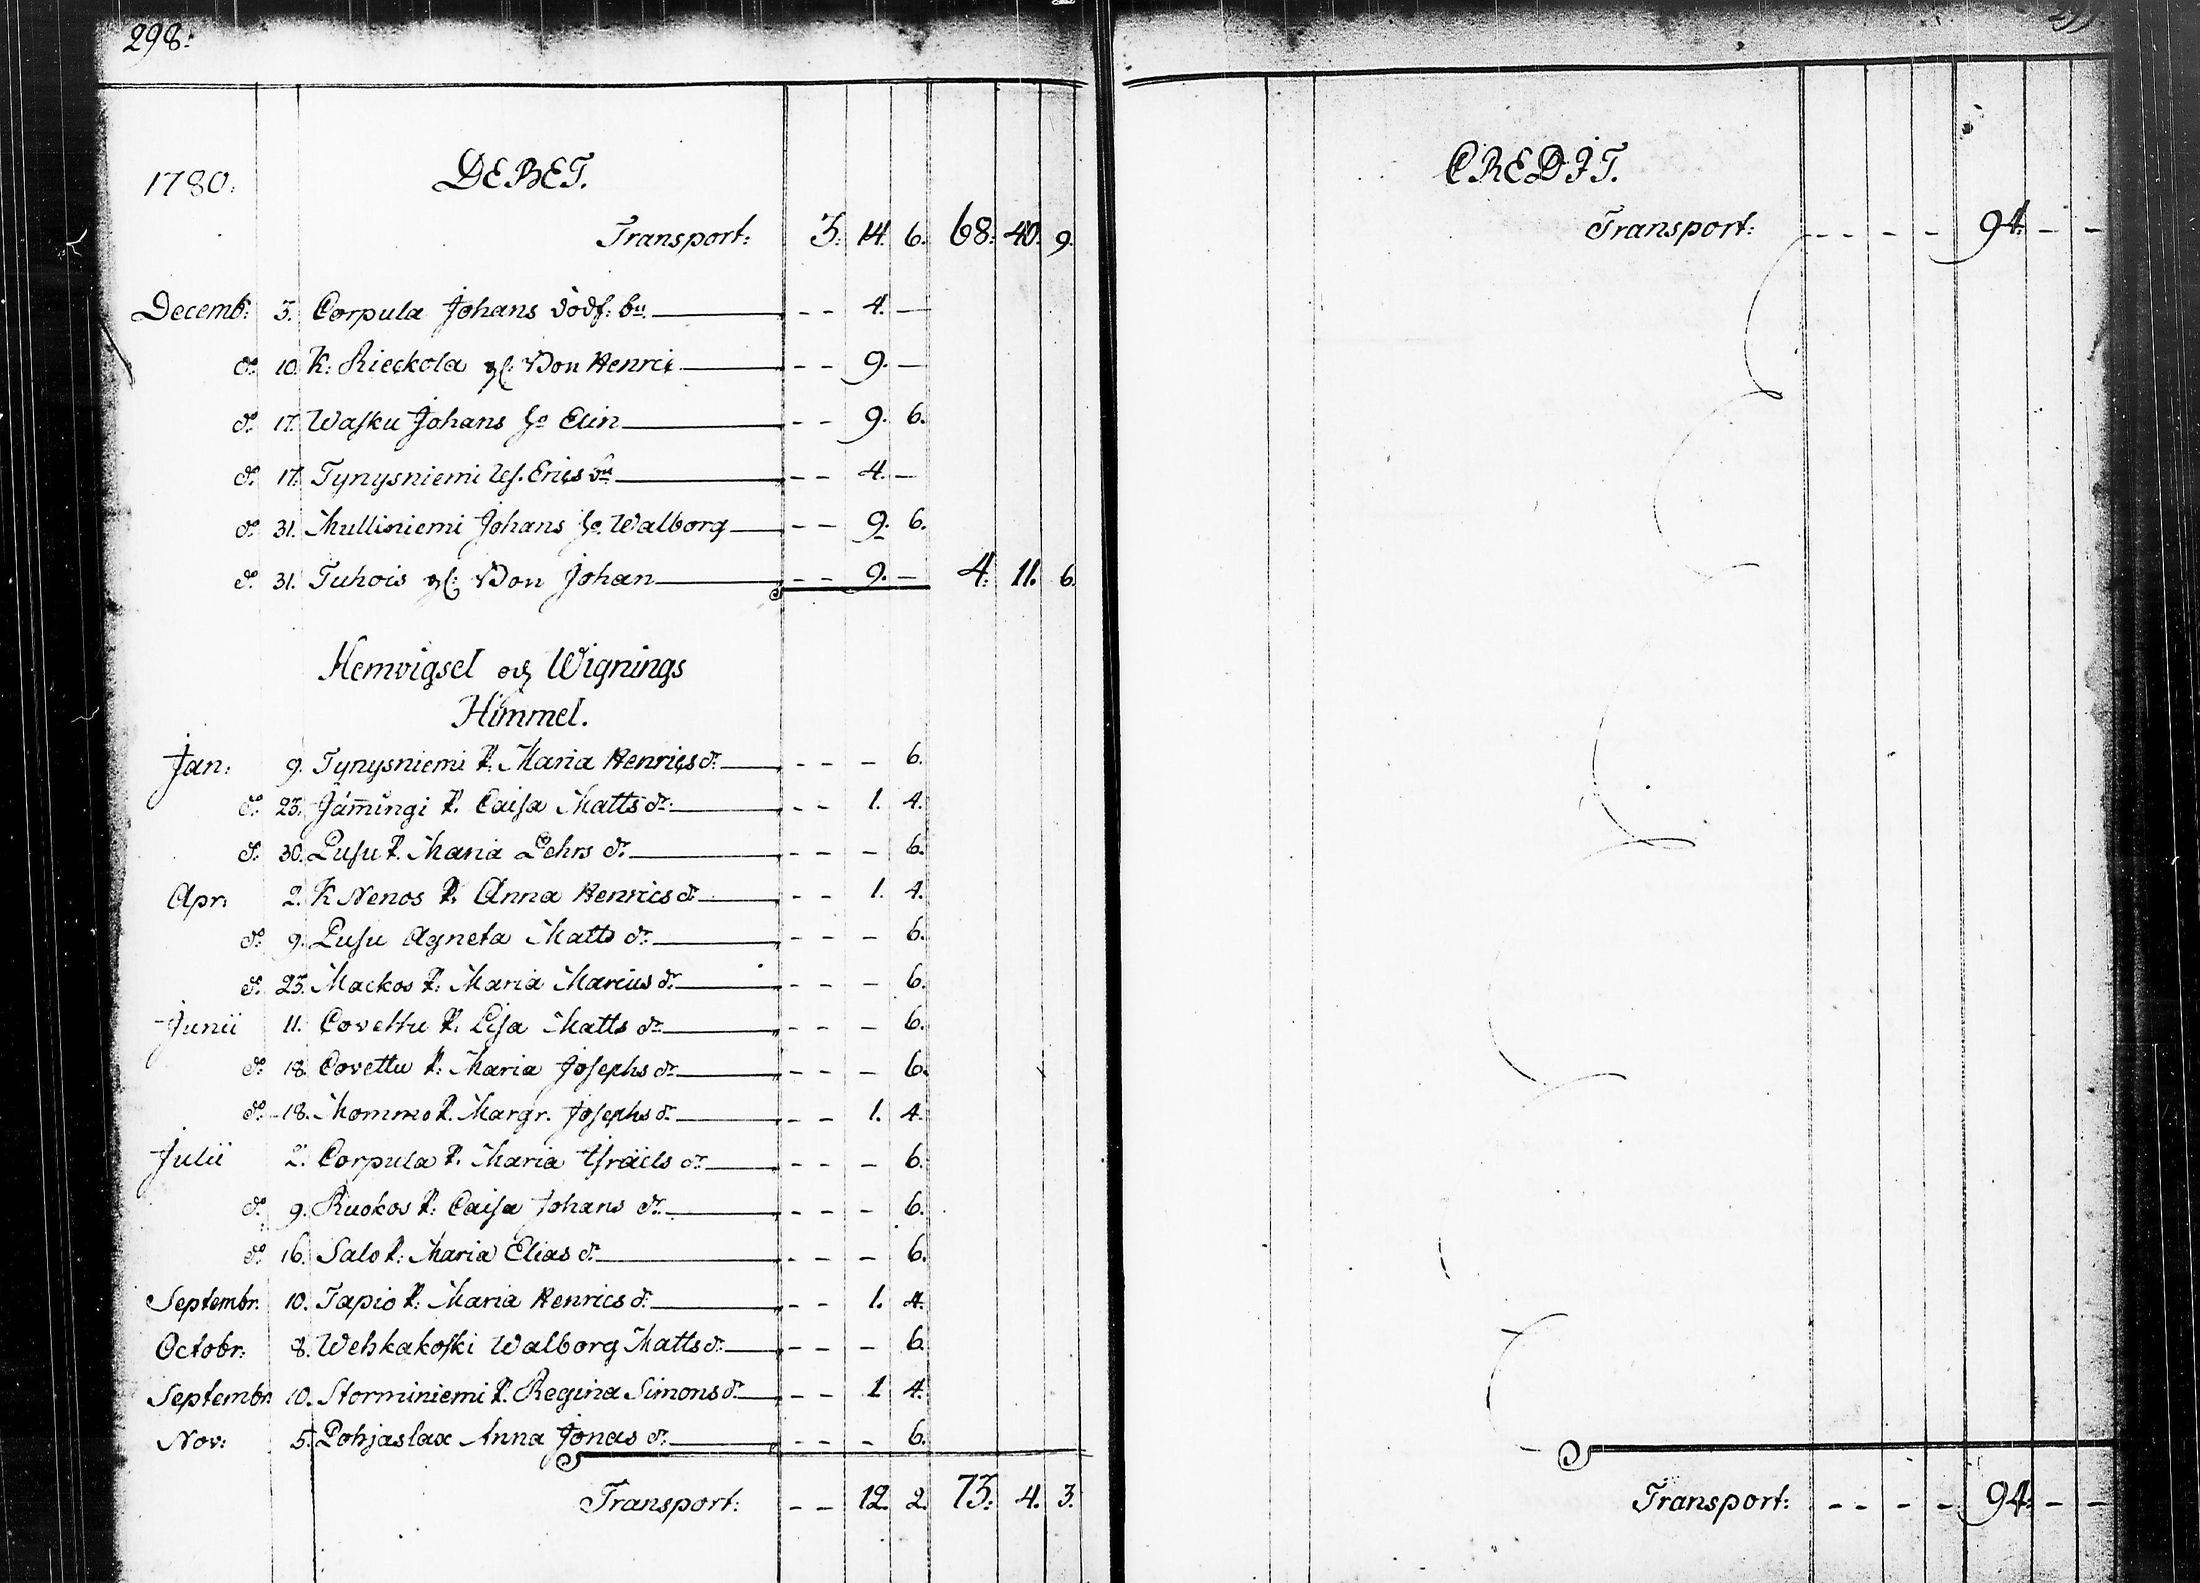 298.
1780. DEBET.
Transport: 3. 14. 6. 68. 40. 9.
Decemb: 3. Corpula Johans dödf: bn. - - 4. —
do. 10. K. Rieckola gl: Bon Henric - - 9. —
do. 17. Wasku Johans ho Elin - - 9. 6.
do. 17. Tynysniemi Erics - - 4. —
do. 31. Mulliniemi Johans ho. Walborg - - 9. 6.
do. 31. Tuhois gl: Bon Johan - - 9. — 4. 11. 6.
Hemvigsel och Wignings
Himmel.
Jan: 9. Tynysniemi P. Maria Henrics dr. - - — 6.
do. 23. Jämingi P. Caisa Matts dr. - - 1. 4.
do. 30. Pusu P. Maria Pehrs dr. - - — 6.
Apr: 2. K Nenos P. Anna Henrics dr. - - 1. 4.
do. 9. Pusu Agneta Matts dr. - - — 6.
do. 23. Mackos P. Maria Marcus dr. - - — 6.
Junii 11. Covettu P. Lisa Matts dr. - - — 6.
do. 18. Covettu P. Maria Josephs dr. - - — 6.
do. 18. Mommo P. Margr. Josephs dr. - - 1. 4.
Julii 2. Corpula P. Maria Israels dr. - - — 6.
do. 9. Ruokos P. Caisa Johans dr. - - — 6.
do. 16. Salo P. Maria Elias dr. - - — 6.
Septembr. 10. Tapio P. Maria Henrics dr. - - 1. 4.
Octobr: 8. Wehkakoski Walborg Matts dr. - - — 6.
Septembr. 10. Storminiemi P. Regina Simons dr. - - 1 4.
Nov: 5. Pohjaslax Anna Jonas dr. - - — 6.
Transport: - - 12. 2. 73. 4. 3.
CREDIT.
Transport: - - - - 94. - -
Transport: - - - - 94. - -